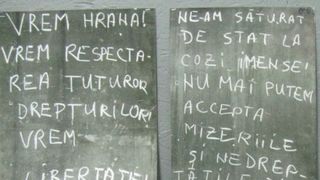 VREM HRANĂ!
VREM RESPECTA-
REA TUTUROR
DREPTURILOR
VREM
LIBERTATE!
NE-AM SĂTURAT
DE STAT LA
COZI IMENSE!
NU MAI PUTEM
ACCEPTA
MIZERIILE
ȘI NEDREP-
TĂȚILE